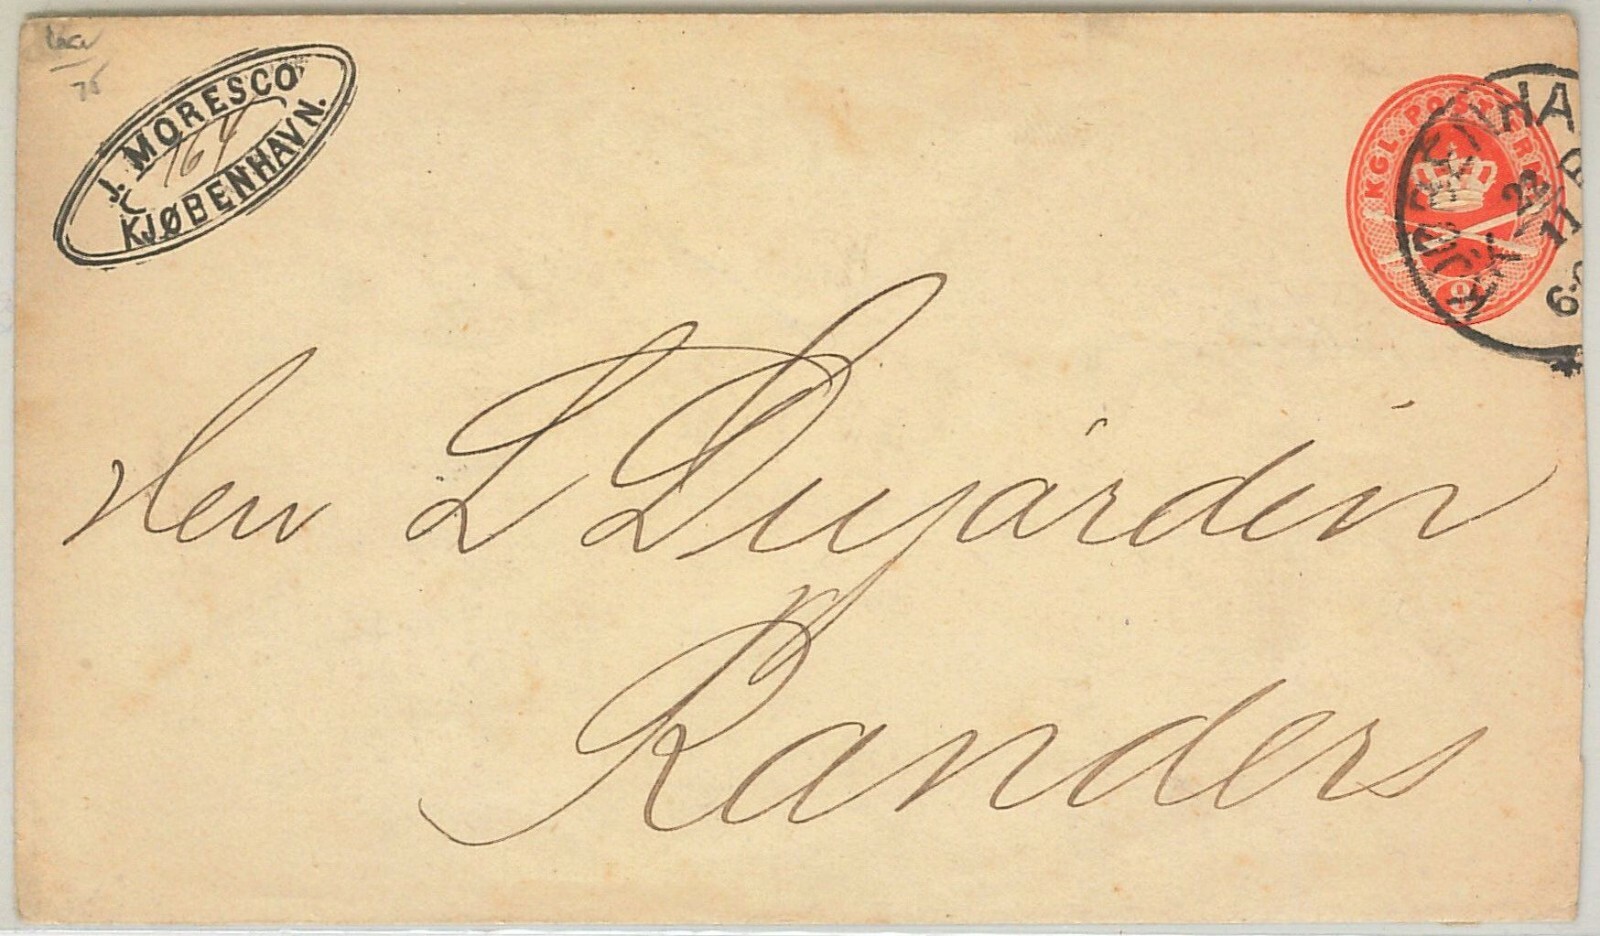 J. MORESCO
164
KJØBENHAVN.
KGL. POST FRM
KJØBENHA
22
11
Herr L Dujardin
Randers